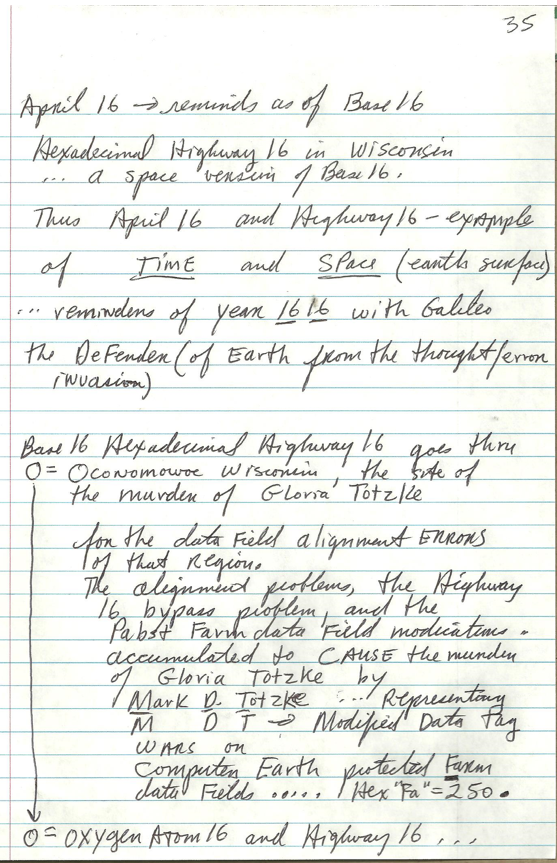 35
April 16 → reminds as of Base 16
Hexadecimal Highway 16 in Wisconsin
... a space version of Base 16.
Thus April 16 and Highway 16 - example
of TIME and SPACE (earth surface)
... reminders of year 1616 with Galileo
the Defender (of Earth from the thought/error
invasion)
Base 16 Hexadecimal Highway 16 goes thru
O = Oconomowoc Wisconsin, the site of
the murder of Gloria Totzke
for the data Field alignment ERRORS
of that Region.
The alignment problems, the Highway
16 bypass problem, and the
Pabst Farm data Field modications -
accumulated to CAUSE the murder
of Gloria Totzke by
Mark D. Totzke ... Representing
M D T → Modified Data Tag
WARS on
Computer Earth protected Farm
data Fields ..... Hex "Fa" = 250.
O = OXYgen Atom 16 and Highway 16 ...